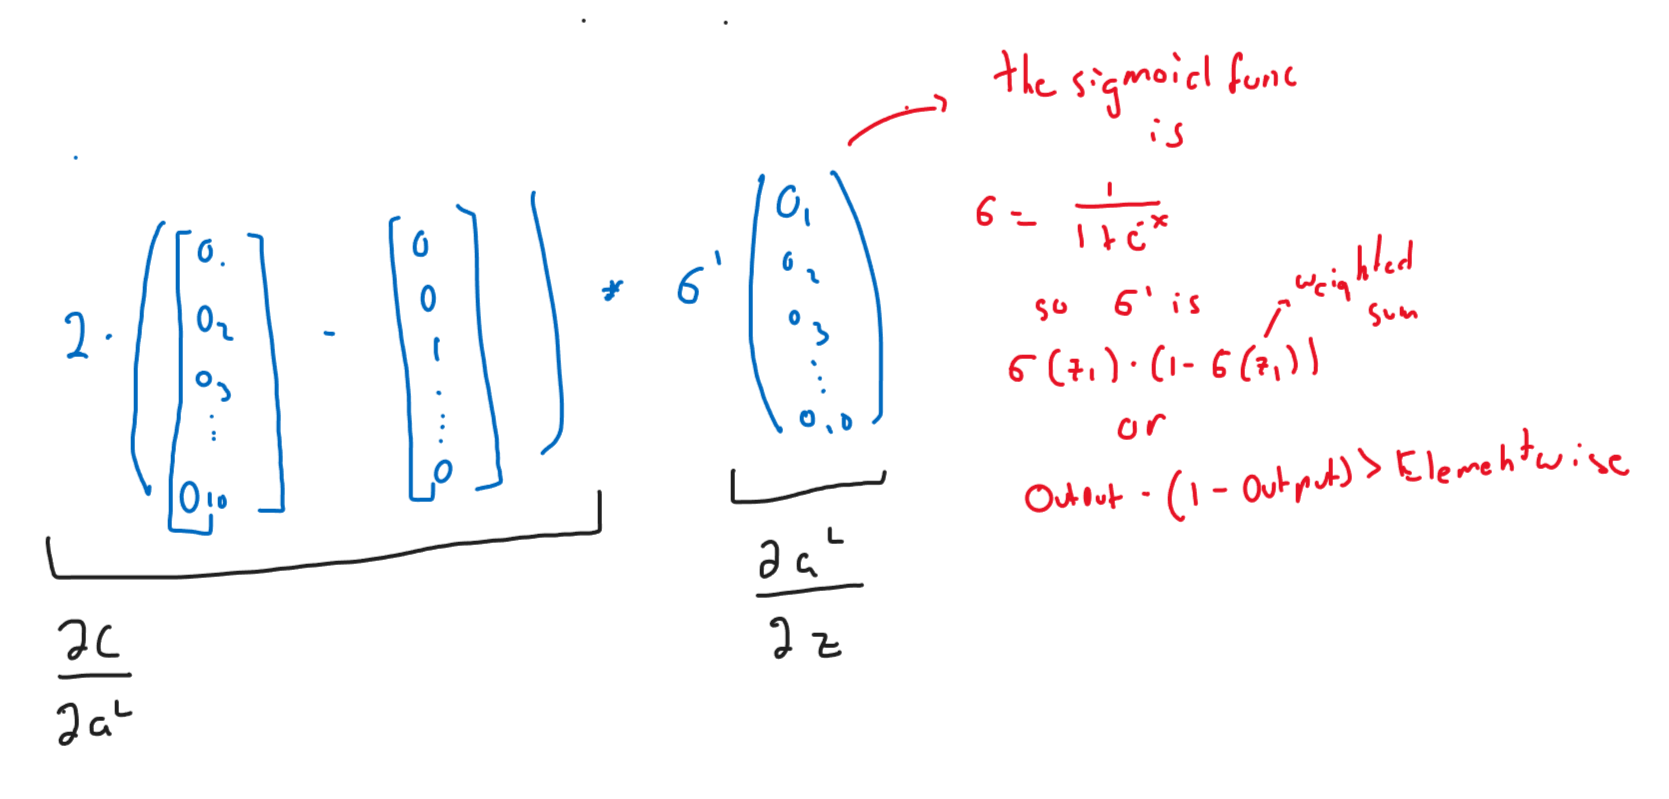 2 · ( [ O₁ O₂ O₃ ⋮ O₁₀ ] - [ 0 0 1 ⋮ 0 ] ) * σ' ( O₁ O₂ O₃ ⋮ O₁₀ )
∂C
∂aᴸ
∂aᴸ
∂z
the sigmoid func
is
σ = 1 / (1 + e^-x)
so σ' is
weighted
sum
σ(z₁) · (1 - σ(z₁))
or
Output · (1 - Output) > Elementwise